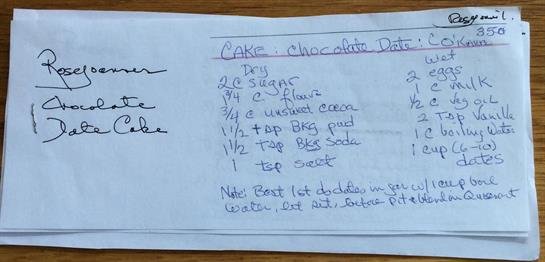 350
CAKE: Chocolate Date:
Chocolate
Date Cake
Dry
2 C sugar
3/4 C unsweet cocoa
1 1/2 tsp Bkg pwd
1 1/2 tsp Bkg Soda
1 tsp salt
Wet
2 eggs
1 C milk
1/2 C veg oil
2 Tsp Vanilla
1 C boiling Water
1 cup (6-10)
dates
Note: Best 1st do dates in jar w/1 cup boil
water, let sit, before pit & blend on